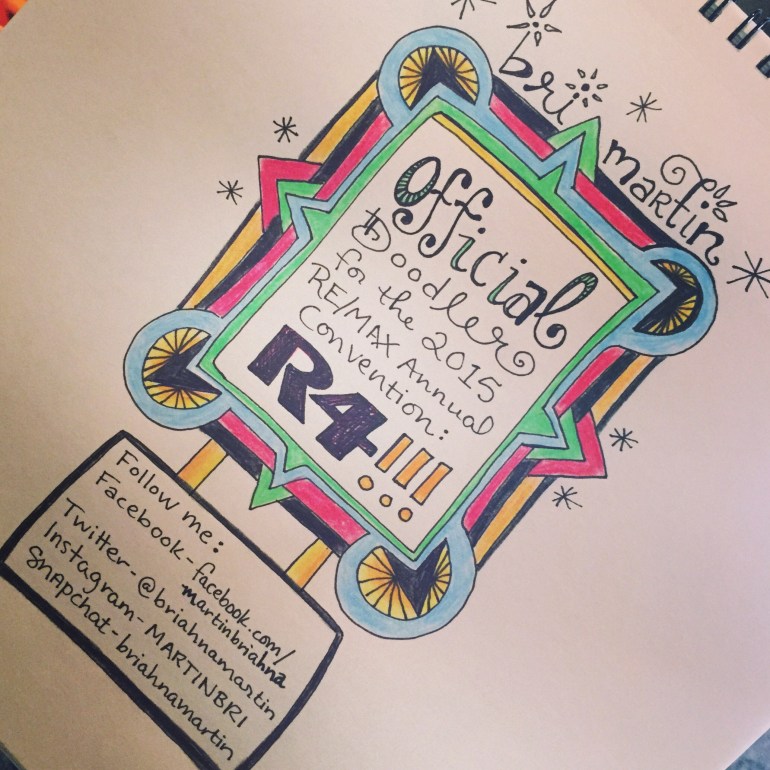 bri martin
Official
Doodler
for the 2015
RE/MAX Annual
Convention:
R4!!!
Follow me:
Facebook-facebook.com/
martinbriahna
Twitter-@briahnamartin
Instagram-MARTINBRI
Snapchat-briahnamartin